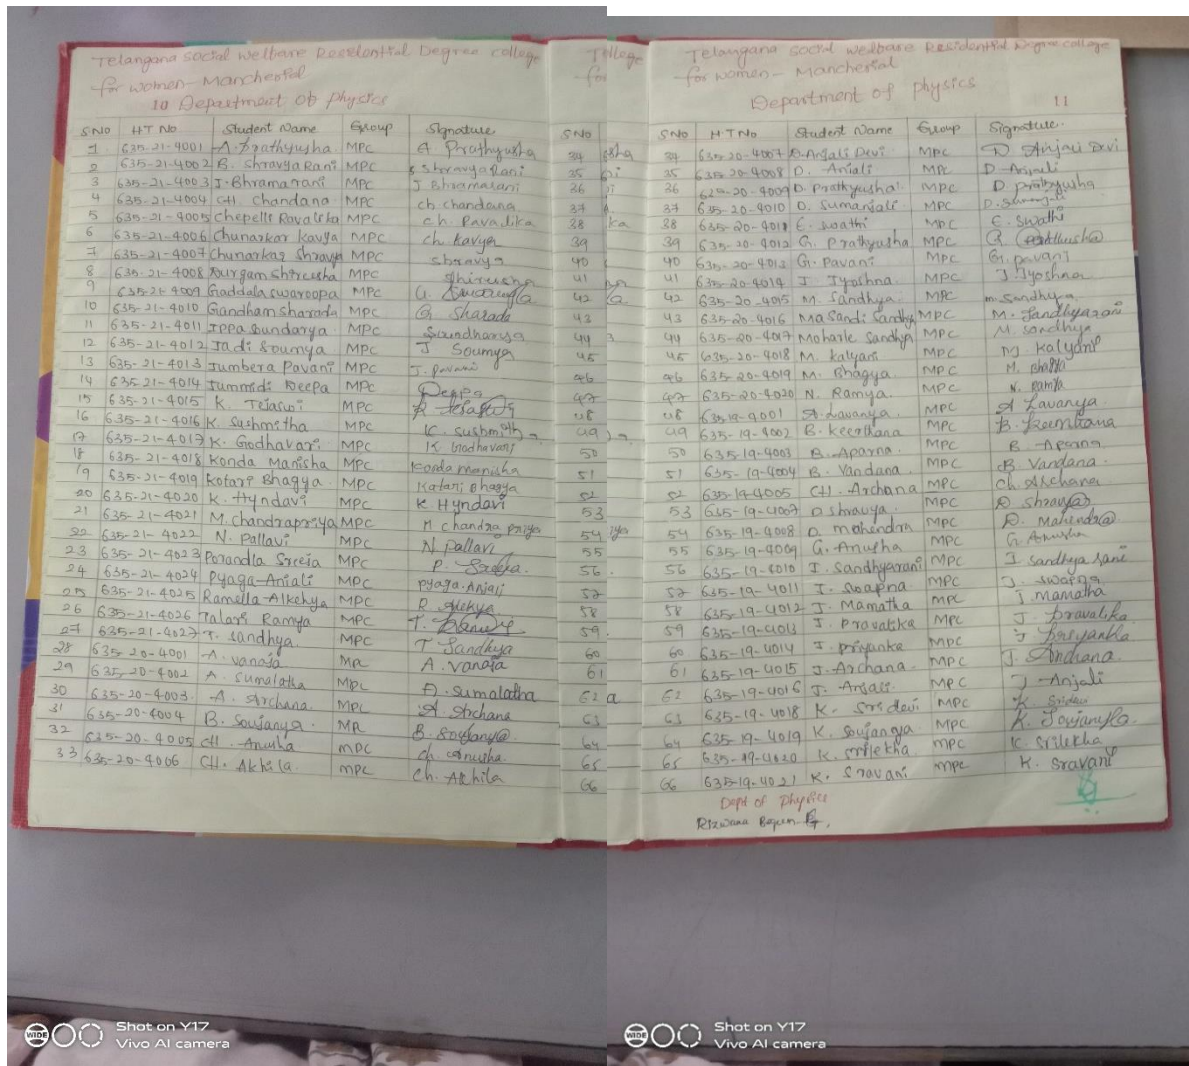 Telangana Social Welbare Residential Degree college
for women- Mancherial
10 Department of physics
S.No HT No Student Name Group Signature
1 635-21-4001 A. Prathyusha MPC A. Prathyusha
2 635-21-4002 B. Shravya Rani MPC B Shravya Rani
3 635-21-4003 J. Bhramarani MPC J Bhramarani
4 635-21-4004 CH. Chandana MPC ch chandana
5 635-21-4005 Chepelli Ravalika MPC ch. Ravalika
6 635-21-4006 Chunarkar kavya MPC ch. kavya
7 635-21-4007 Chunarkar Shravya MPC shravya
8 635-21-4008 Durgam Shireesha MPC
9 635-21-4009 Gaddala swaroopa MPC G.
10 635-21-4010 Gandham sharada MPC G. Sharada
11 635-21-4011 Ippa Soundarya MPC Soundharya
12 635-21-4012 Jadi Soumya MPC J Soumya
13 635-21-4013 Jumbera Pavani MPC J. pavani
14 635-21-4014 Jummidi Deepa MPC Deepa
15 635-21-4015 K. Tejaswi MPC
16 635-21-4016 K. Sushmitha MPC K. Sushmitha
17 635-21-4017 K. Godhavari MPC K Godhavari
18 635-21-4018 Konda Manisha MPC Konda manisha
19 635-21-4019 Kotari Bhagya MPC Katari Bhagya
20 635-21-4020 K. Hyndavi MPC K Hyndavi
21 635-21-4021 M. chandrapriya MPC M chandra priya
22 635-21-4022 N. Pallavi MPC N pallavi
23 635-21-4023 Porandla Sreeja MPC P.
24 635-21-4024 Pyaga-Anjali MPC pyaga.Anjali
25 635-21-4025 Ramella Alkehya MPC R
26 635-21-4026 Talari Ramya MPC T.
27 635-21-4027 T. Sandhya MPC T Sandhya
28 635-20-4001 A. vanaja MPC A. vanaja
29 635-20-4002 A. Sumalatha MPC A. Sumalatha
30 635-20-4003 A. Archana MPC A. Archana
31 635-20-4004 B. Soujanya MPC B. Soujanya
32 635-20-4005 CH. Anusha MPC ch. Anusha
33 635-20-4006 CH. Akhila MPC Ch. Akhila
Telangana Social Welbare Residential Degree college
for women- Mancherial
Department of physics 11
S.No H.T No Student Name Group Signature
34 635-20-4007 D. Anjali Devi MPC D Anjali Devi
35 635-20-4008 D. Anjali MPC D Anjali
36 635-20-4009 D. Prathyusha MPC D prathyusha
37 635-20-4010 D. Sumanjali MPC D.
38 635-20-4011 E. Swathi MPC E. Swathi
39 635-20-4012 G. Prathyusha MPC G.
40 635-20-4013 G. Pavani MPC G. pavani
41 635-20-4014 J. Jyoshna MPC J Jyoshna
42 635-20-4015 M. Sandhya MPC m. Sandhya
43 635-20-4016 Masandi Sandhya MPC M. Sandhyarani
44 635-20-4017 Moharle Sandhya MPC M. Sandhya
45 635-20-4018 M. Kalyani MPC M. Kalyani
46 635-20-4019 M. Bhagya MPC M. Bhagya
47 635-20-4020 N. Ramya MPC N. Ramya
48 635-19-4001 A. Lavanya MPC A Lavanya
49 635-19-4002 B. Keerthana MPC B. Keerthana
50 635-19-4003 B. Aparna MPC B. Aparna
51 635-19-4004 B. Vandana MPC B. Vandana
52 635-19-4005 CH. Archana MPC Ch. Archana
53 635-19-4007 D shravya MPC D. Shravya
54 635-19-4008 D. mahendra MPC D. Mahendra
55 635-19-4009 G. Anusha MPC G. Anusha
56 635-19-4010 J. Sandhyarani MPC J. Sandhya rani
57 635-19-4011 J. Swapna MPC J. Swapna
58 635-19-4012 J. Mamatha MPC J mamatha
59 635-19-4013 J. Pravalika MPC J. pravalika
60 635-19-4014 J. priyanka MPC J. priyanka
61 635-19-4015 J. Archana MPC J. Archana
62 635-19-4016 J. Anjali MPC J. Anjali
63 635-19-4018 K. Sridevi MPC K. Sridevi
64 635-19-4019 K. Soujanya MPC K. Soujanya
65 635-19-4020 K. Srilekha MPC K. Srilekha
66 635-19-4021 K. Sravani MPC K. Sravani
Dept of Physics
Rizwana Begum
WIDE Shot on Y17
Vivo AI camera
WIDE Shot on Y17
Vivo AI camera